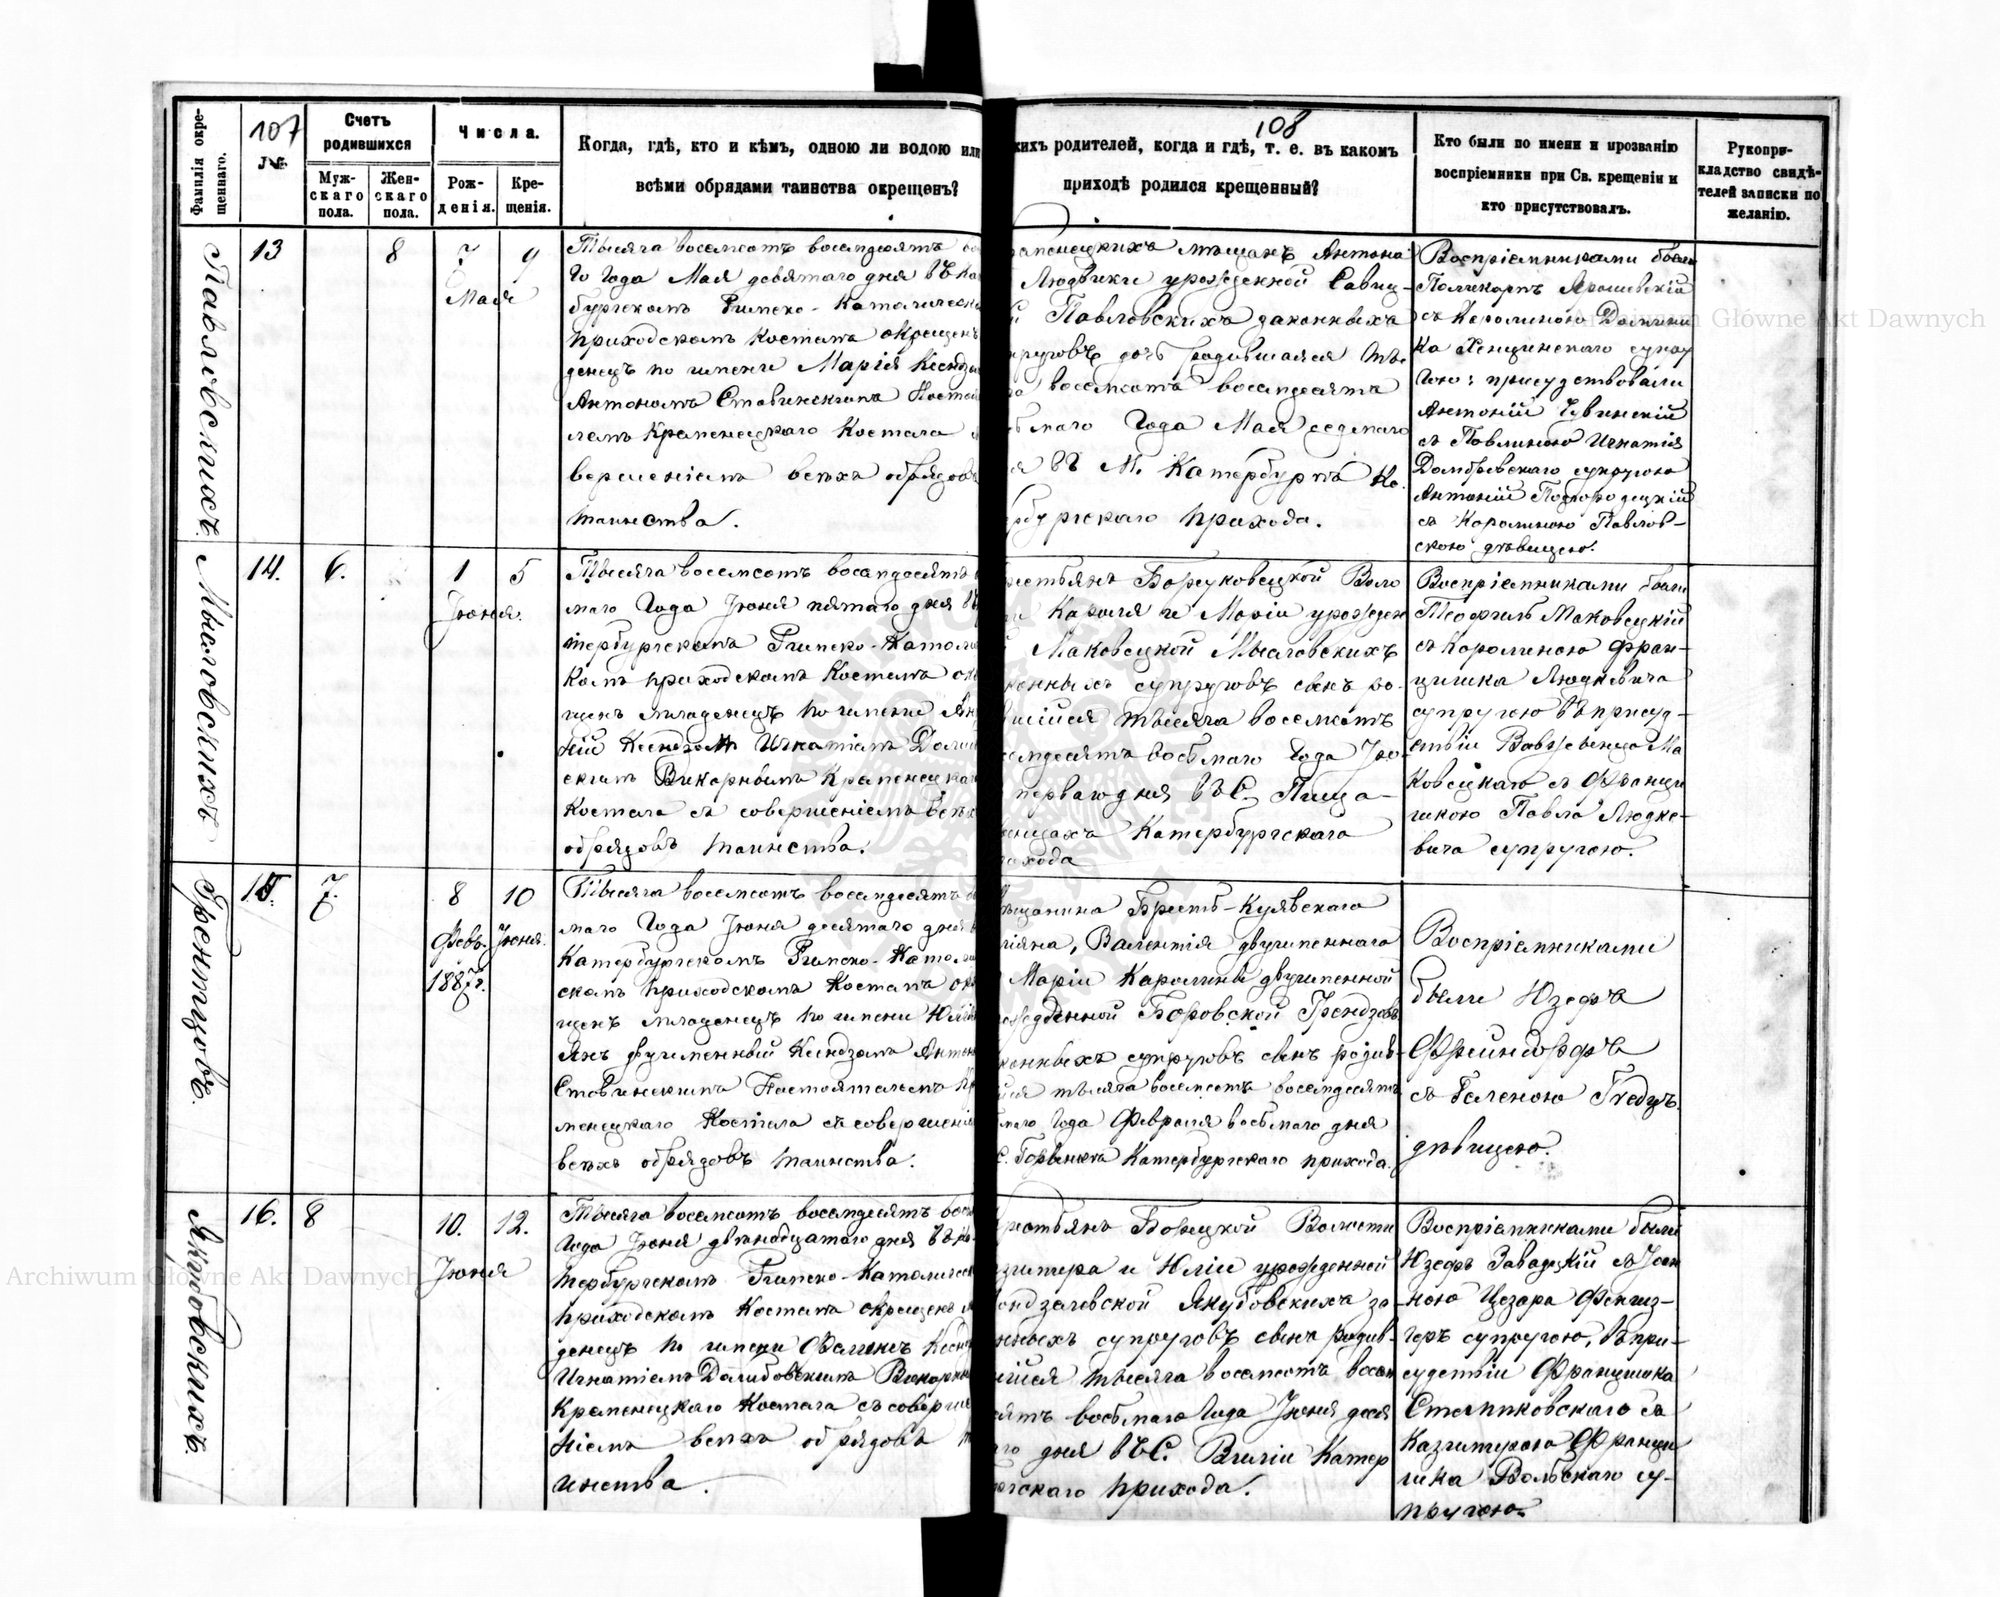 107
108
Фамилія окре-
щеннаго.
№.
Счетъ
родившихся
Муж-
скаго
пола.
Жен-
скаго
пола.
Числа.
Рож-
денія.
Кре-
щенія.
Когда, гдѣ, кто и кѣмъ, одною ли водою или
всѣми обрядами таинства окрещенъ?
кихъ родителей, когда и гдѣ, т. е. въ какомъ
приходѣ родился крещенный?
Кто были по имени и прозванію
воспріемники при Св. крещеніи и
кто присутствовалъ.
Рукопри-
кладство свидѣ-
телей записки по
желанію.
Павловскихъ.
13
8
7
9
Мая
Тысяча восемсотъ восемдесятъ
го Года Мая девятаго дня въ Ка
бургскомъ Римско-Католическ
приходскомъ Костелѣ окрещен
денецъ по имени Марія Ксендзом
Антономъ Ставинскимъ Настоя
лемъ Кременецкаго Костела
вершеніемъ всѣхъ обрядовъ
таинства.
ременецкихъ мѣщанъ Антона
Людвики урожденной Савиц-
й Павловскихъ законныхъ
пруговъ дочь родившаяся ты-
восемсотъ восемдесятъ
ьмаго Года Мая седмаго
я въ М. Катербургѣ Ка-
рбургскаго прихода.
Воспріемниками были
Поликарпъ Ярошевскій
съ Каролиною Домини
ка Хенцинскаго супру
гою: присудствовали
Антоній Чувинскій
съ Павлиною Игнатія
Домбровскаго супругою
Антоній Подгородецкій
съ Каролиною Павлов-
скою дѣвицею.
Мысловскихъ
14.
6.
1
5
Іюня.
Тысяча восемсотъ восемдесятъ
маго Года Іюня пятаго дня въ
тербургскомъ Римско-Католи
комъ приходскомъ Костелѣ окр
щенъ младенецъ по имени Ан
ній Ксендзомъ Игнатіемъ Долин
скимъ Викарнымъ Кременецкаго
Костела съ совершеніемъ всѣхъ
обрядовъ таинства.
рестьянъ Борсуковецкой Воло
и Кароля и Маріи урожден
й Маковецкой Мысловскихъ
конныхъ супруговъ сынъ ро-
вшійся тысяча восемсотъ
семдесятъ восьмаго Года Ію-
перваго дня въ С. Пища-
тинцахъ Катербургскаго
рихода
Воспріемниками были
Теофилъ Маковецкій
съ Каролиною Фран-
цишка Людкевича
супругою въ присуд-
ствіи Вавженца Ма
ковецкаго съ Францы
шкою Павла Людке-
вича супругою.
15.
7.
8
10
Февр.
Іюня.
1887г.
Тысяча восемсотъ восемдесятъ
маго Года Іюня десятаго дня
Катербургскомъ Римско-Катол
скомъ приходскомъ Костелѣ окр
щенъ младенецъ по имени Юлі
Янъ двуименный Ксендзомъ Антон
Ставинскимъ Настоятелемъ Кре
менецкаго Костела съ совершеніе
всѣхъ обрядовъ таинства.
ѣщанина Брестъ-Куявскаго
іяна, Валентія двуименнаго
Маріи Каролины двуименной
рожденной Боровской
конныхъ супруговъ сынъ родив-
ійся тысяча восемсотъ восемдесятъ
маго Года Февраля восьмаго дня
С. Горынкѣ Катербургскаго прихода.
Воспріемниками
были Юзефъ
Фрейндорфъ
съ Геленою
дѣвицею.
Якубовскихъ.
16.
8
10.
12.
Іюня
Тысяча восемсотъ восемдесятъ вось
Года Іюня двѣнадцатаго дня въ Ка
тербургскомъ Римско-Католическ
приходскомъ Костелѣ окрещенъ мл
денецъ по имени Ксендз
Игнатіемъ Викарным
Кременецкаго Костела съ соверше
ніемъ всѣхъ обрядовъ та
инства.
рестьянъ Борецкой Волости
азимера и Юліи урожденной
ондзалевской Якубовскихъ за
онныхъ супруговъ сынъ родив-
шійся тысяча восемсотъ восем
сятъ восьмаго Года Іюня деся
го дня въ С. Виліи Катер
ргскаго прихода.
Воспріемниками были
Юзефъ Завадзкій съ Іоан
ною Цезара Фенгиз-
геръ супругою, въ при-
судствіи Францишка
Стемпковскаго съ
Казимирою Францы
шка Вольскаго су-
пругою.
Archiwum Główne Akt Dawnych
Archiwum Główne Akt Dawnych